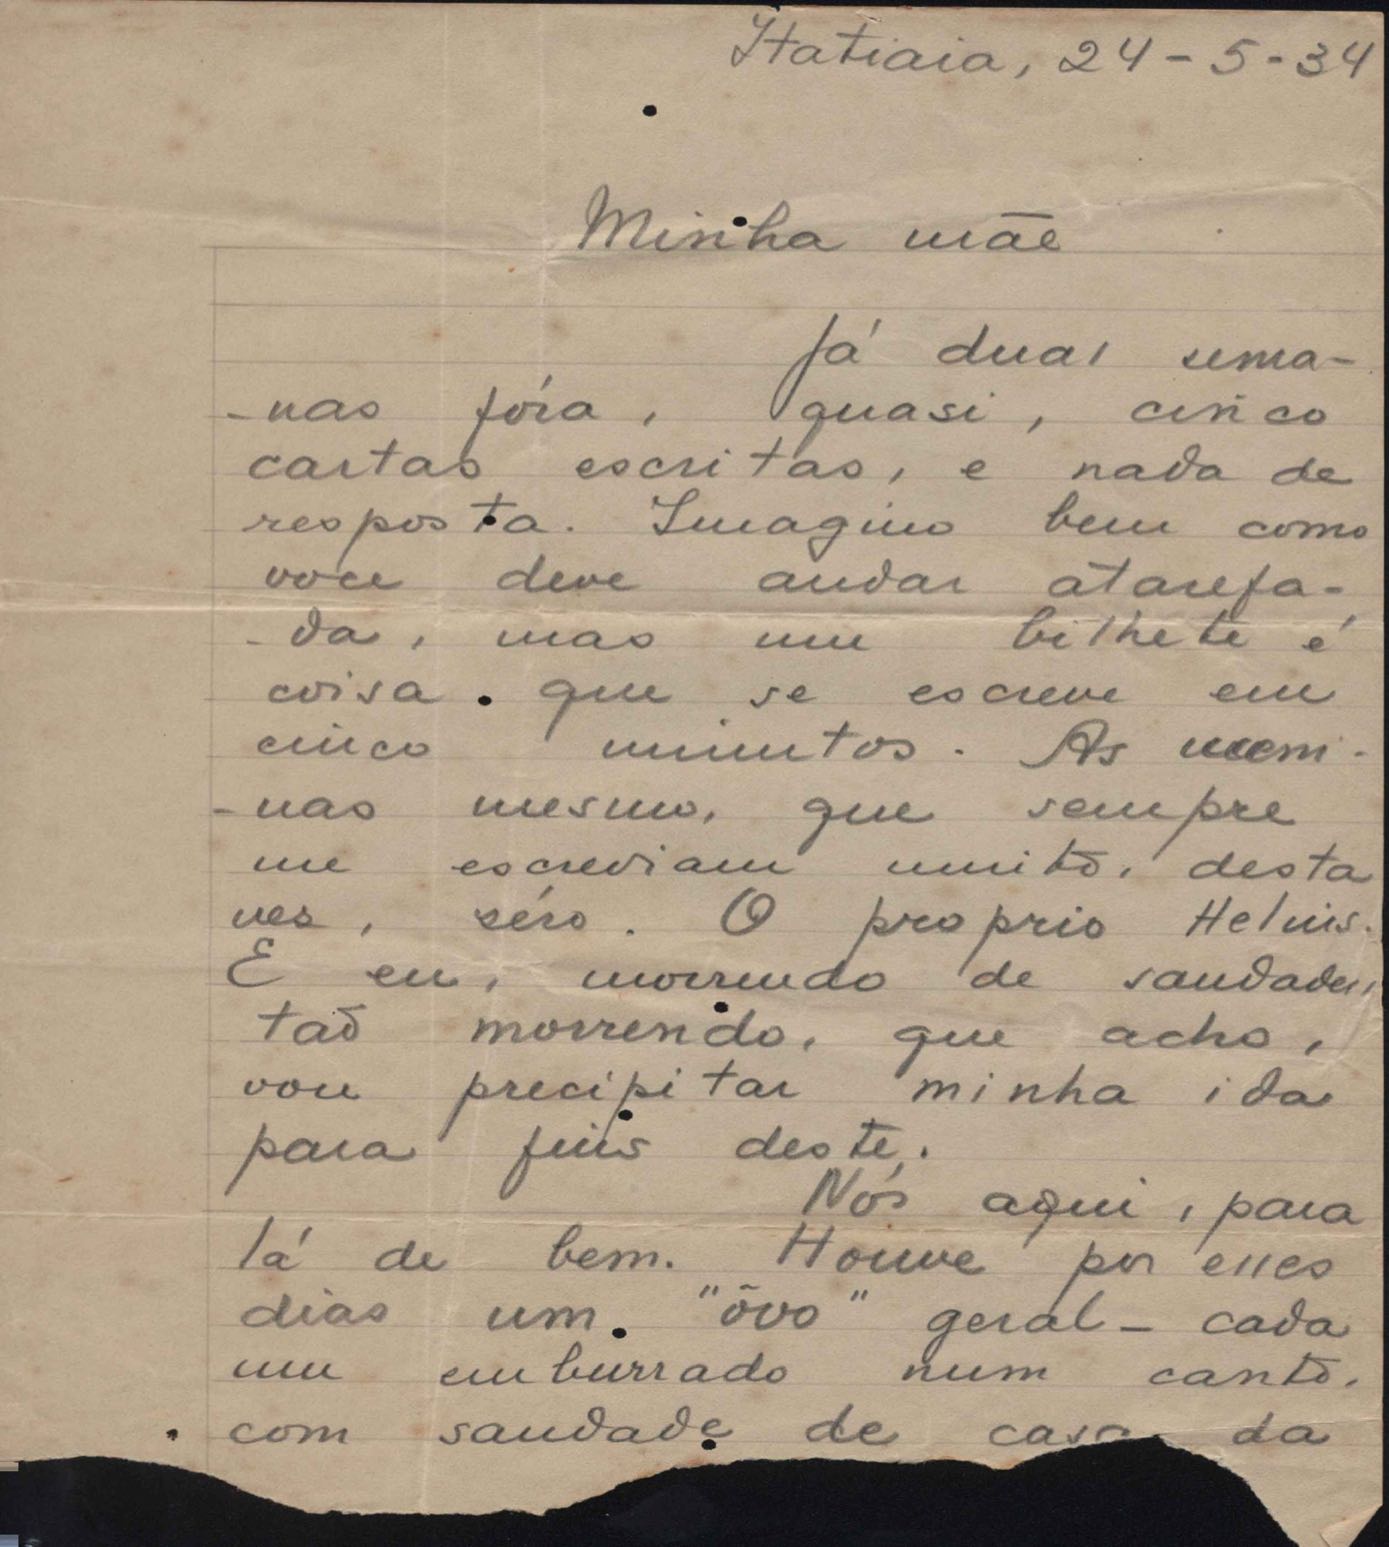 Itatiaia, 24-5-34
Minha mãe
Já duas sema-
-nas fóra, quasi, cinco
cartas escritas, e nada de
resposta. Imagino bem como
voce deve andar atarefa-
-da, mas um bilhete é
coisa que se escreve em
cinco minutos. As meni-
-nas mesmo, que sempre
me escreviam muito, desta
ves, zéro. O proprio Heluis.
E eu, morrendo de saudades,
tão morrendo, que acho,
vou precipitar minha ida
para fins deste.
Nós aqui, para
lá de bem. Houve por esses
dias um "ôvo" geral - cada
um emburrado num canto,
com saudade de casa, da